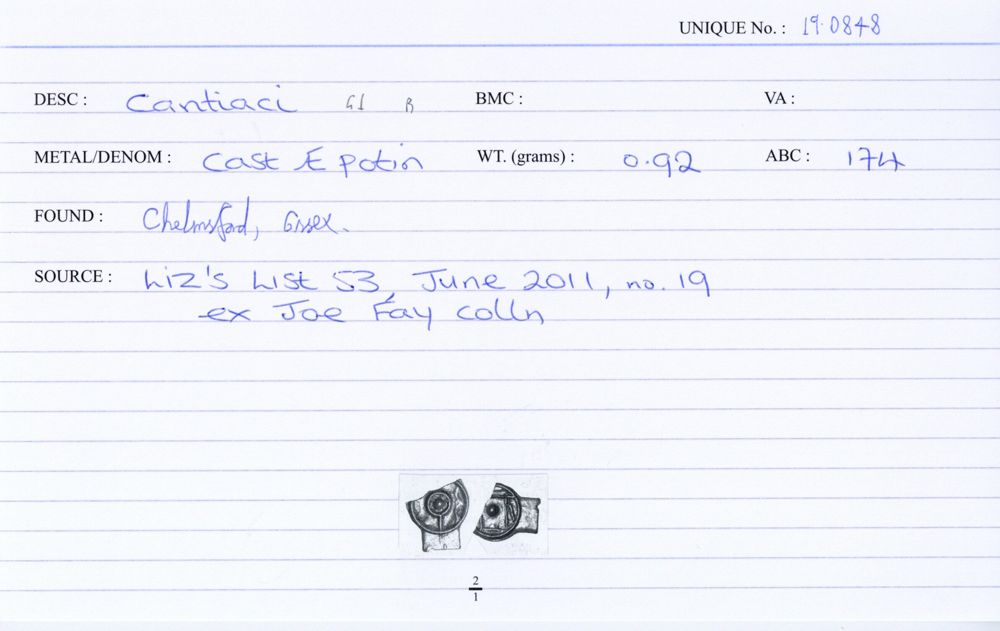 UNIQUE No. : 19.0848
DESC : Cantiaci G1 B BMC : VA :
METAL/DENOM : Cast Æ potin WT. (grams) : 0.92 ABC : 174
FOUND : Chelmsford, Essex.
SOURCE : Liz's List 53, June 2011, no. 19
ex Joe Fay colln
2
1